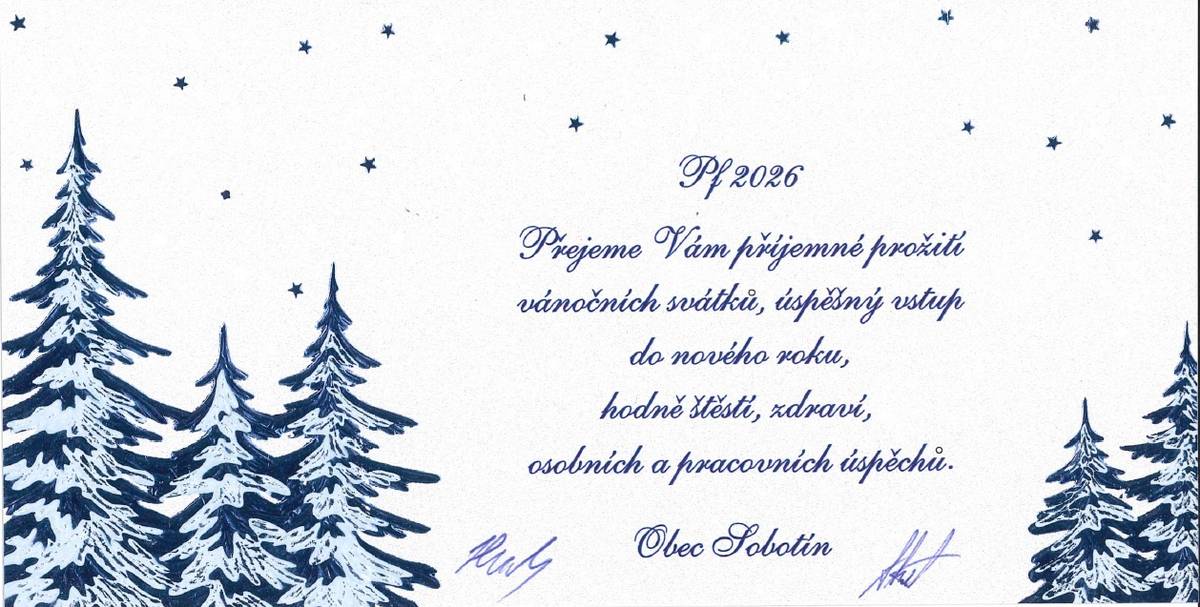 Pf 2026
Přejeme Vám příjemné prožití
vánočních svátků, úspěšný vstup
do nového roku,
hodně štěstí, zdraví,
osobních a pracovních úspěchů.
Obec Sobotín